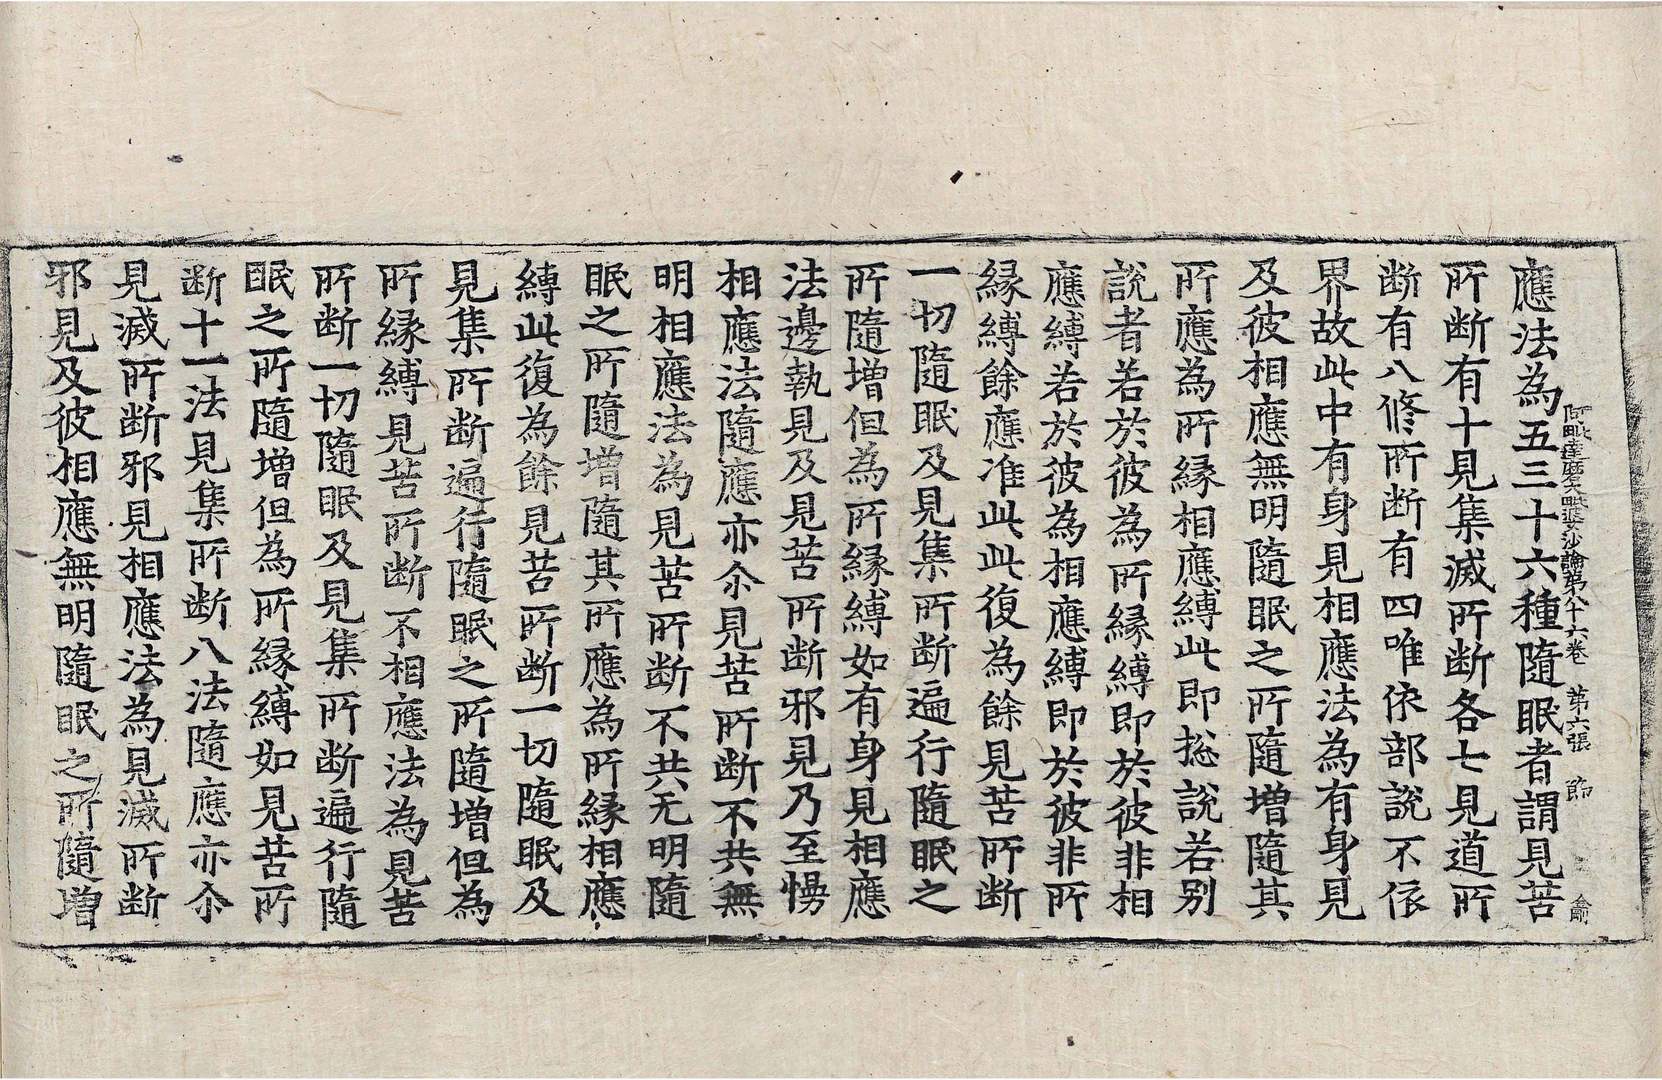 阿毗達磨大毗婆沙論第八十六卷　第六張　節
應法為五三十六種隨眠者謂見苦
所斷有十見集滅所斷各七見道所
斷有八修所斷有四唯依部說不依
界故此中有身見相應法為有身見
及彼相應無明隨眠之所隨增隨其
所應為所緣相應縛此即揔說若別
說者若於彼為所緣縛即於彼非相
應縛若於彼為相應縛即於彼非所
緣縛餘應准此此復為餘見苦所斷
一切隨眠及見集所斷遍行隨眠之
所隨增但為所緣縛如有身見相應
法邊執見及見苦所斷邪見乃至慢
相應法隨應亦尒見苦所斷不共無
明相應法為見苦所斷不共无明隨
眠之所隨增隨其所應為所緣相應
縛此復為餘見苦所斷一切隨眠及
見集所斷遍行隨眠之所隨增但為
所緣縛見苦所斷不相應法為見苦
所斷一切隨眠及見集所斷遍行隨
眠之所隨增但為所緣縛如見苦所
斷十一法見集所斷八法隨應亦尒
見滅所斷邪見相應法為見滅所斷
邪見及彼相應無明隨眠之所隨增